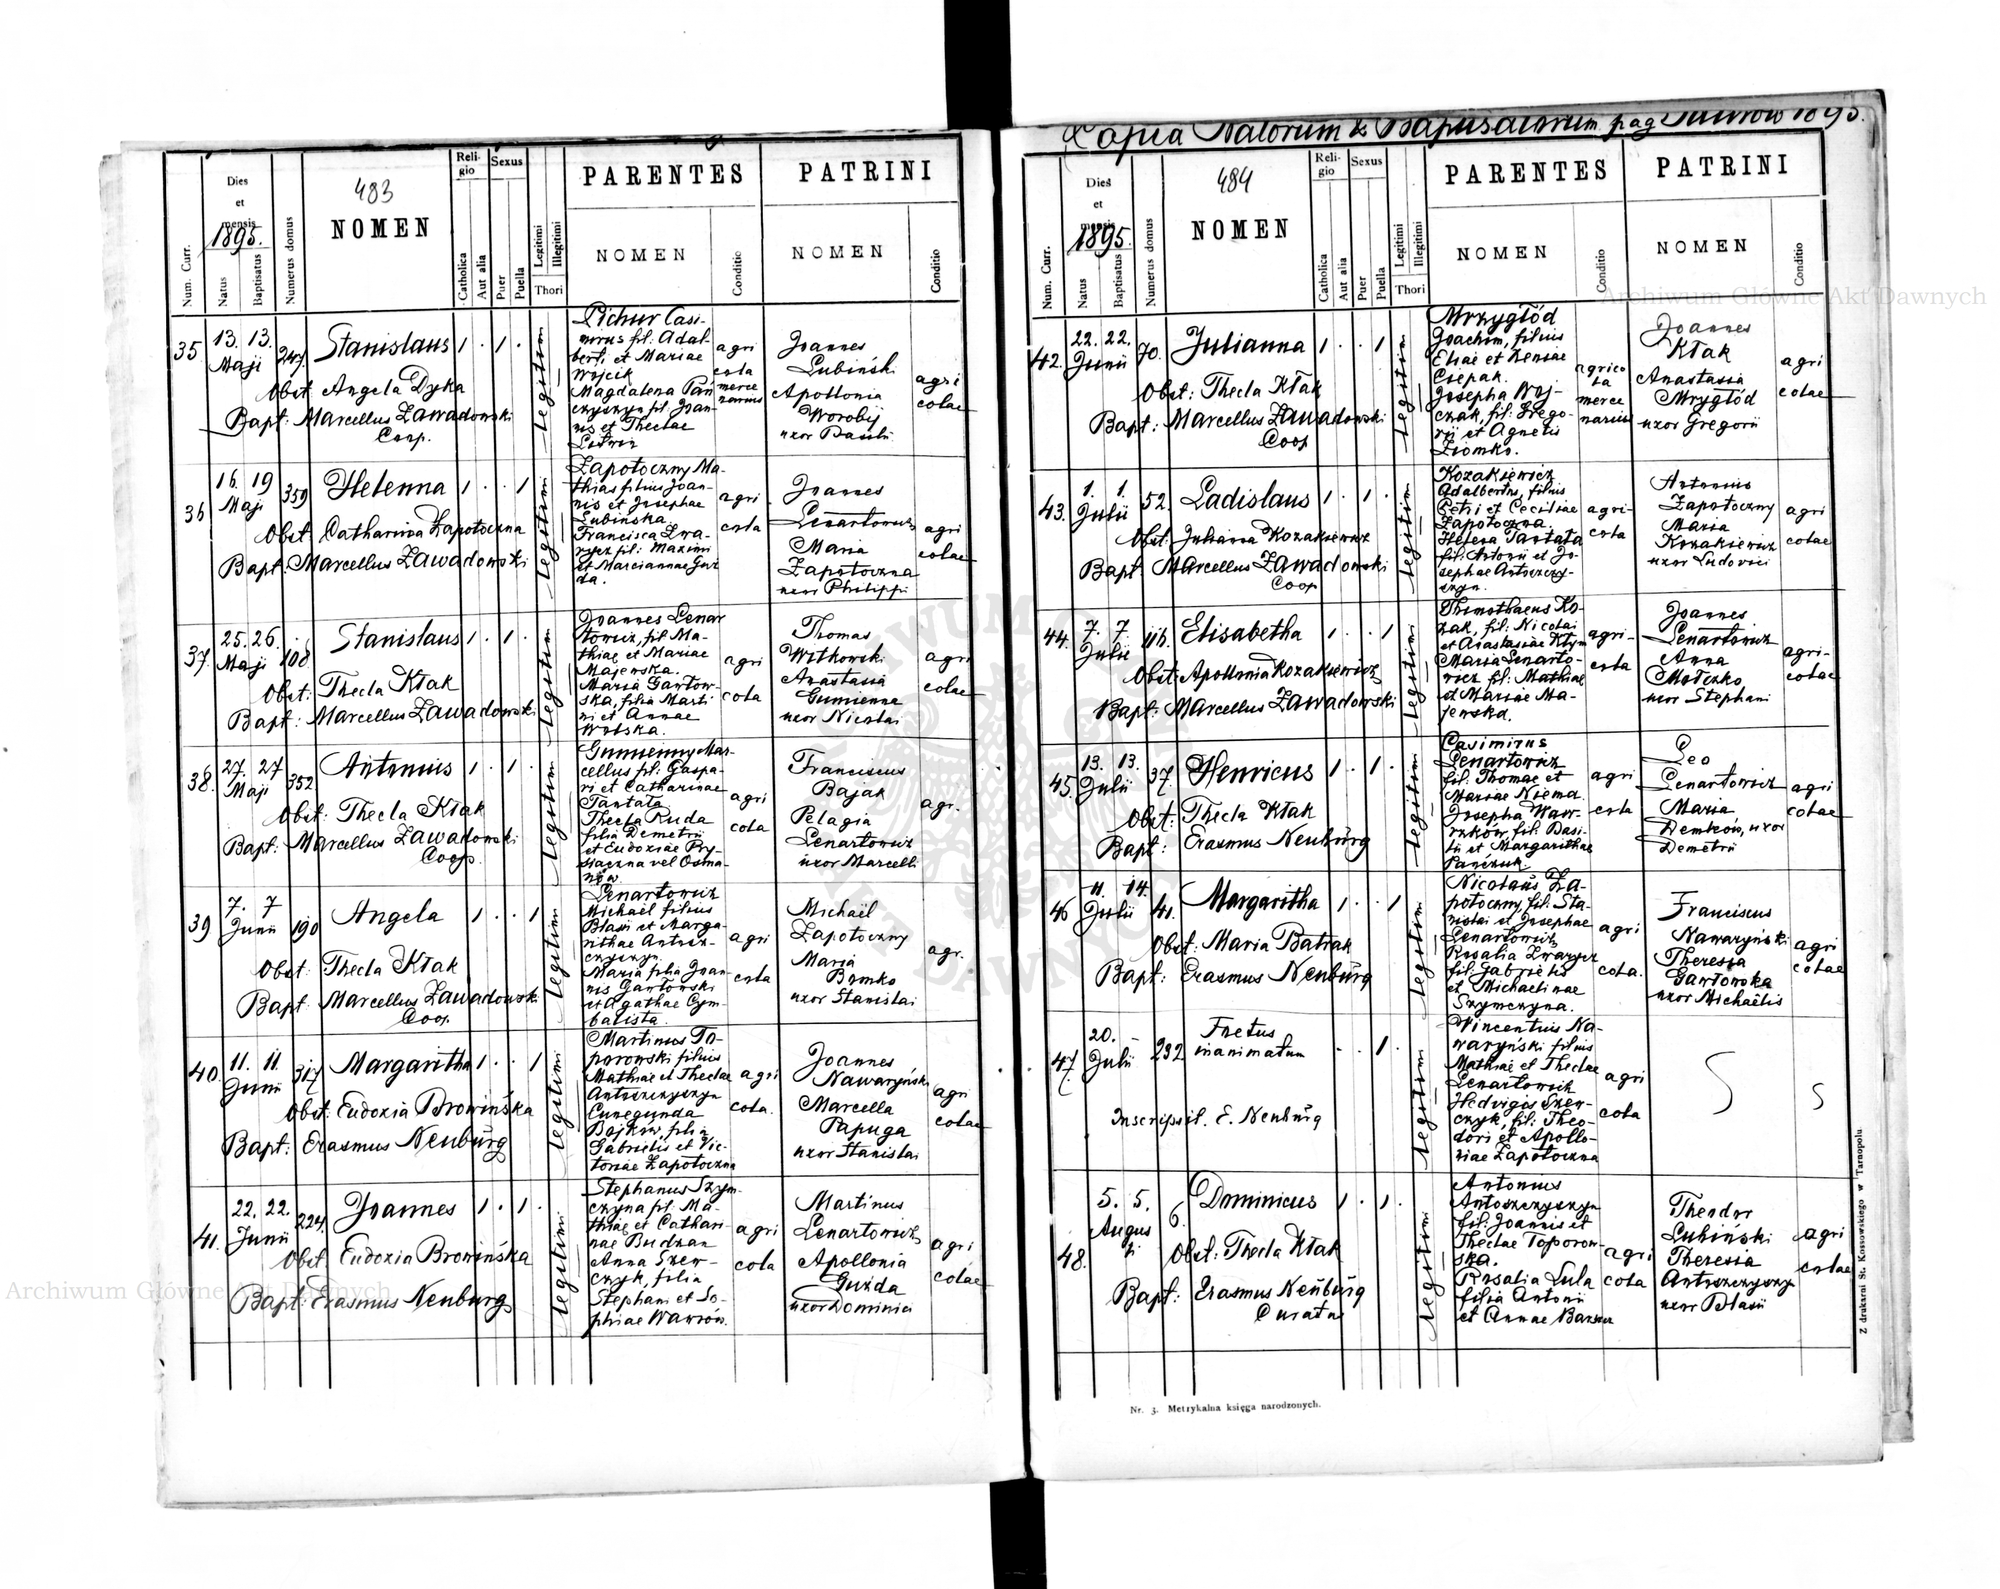 Copia Natorum & Baptisatorum pag 1895.
483
Num. Curr.
Dies et mensis
1895.
Natus
Baptisatus
Numerus domus
NOMEN
Religio
Catholica
Aut alia
Sexus
Puer
Puella
Legitimi
Illegitimi
Thori
PARENTES
NOMEN
Conditio
PATRINI
NOMEN
Conditio
35
13. 13.
Maji
247
Stanislaus
1 . 1 .
Obst. Angela Dyka
Bapt: Marcellus Zawadowski
Coop.
legitimi
Pichur Casi-
mirus fil. Adal-
berti et Mariae
Wojcik
Magdalena Pań
czyszyn fil. Joan-
nis et Theclae
agri
cola
merce
narius
Joannes
Lubiński
Apollonia
Worobij
uxor Pauli
agri
colae
36
16. 19
Maji
359
Helenna
1 . . 1
Obst. Catharina Zapotoczna
Bapt: Marcellus Zawadowski
legitimi
Zapotoczny Ma-
thias filius Joan-
nis et Josephae
Lubińska.
Francisca Zwa-
rycz fil: Maximi
et Mariannae Guz
da.
agri
cola
Joannes
Lenartowicz
Maria
Zapotoczna
uxor Philippi
agri
colae
37.
25. 26.
Maji
108
Stanislaus
1 . 1 .
Obst: Thecla Kłak
Bapt: Marcellus Zawadowski
legitimi
Joannes Lenar
towicz, fil. Ma-
thiae et Mariae
Majewska.
Maria Gartow-
ska, filia Marti
ni et Annae
Wolska.
agri
cola
Thomas
Witkowski
Anastasia
Gumienna
uxor Nicolai
agri
colae
38.
27. 27
Maji
352
Antonius
1 . 1 .
Obst: Thecla Kłak
Bapt: Marcellus Zawadowski
Coop.
legitimi
Gumienny Mar-
cellus fil: Gaspa-
ri et Catharinae
Tantata
Thecla Ruda
filia Demetrii
et Eudoxiae Pry-
siaczna vel Osma-
nów
agri
cola
Franciscus
Bajak
Pelagia
Lenartowicz
uxor Marcelli
agr.
39
7. 7
Junii
190
Angela
1 . . 1
Obst: Thecla Kłak
Bapt: Marcellus Zawadowski
Coop.
legitimi
Lenartowicz
Michaël filius
Blasii et Marga-
rithae Antosz-
czyszyn.
Maria filia Joan-
nis Gartowski
et Agathae Cym-
balista.
agri
cola
Michaël
Zapotoczny
Maria
Bomko
uxor Stanislai
agr.
40.
11. 11.
Junii
317
Margaritha
1 . . 1
Obst: Eudoxia Browińska
Bapt: Erasmus Neuburg
legitimi
Martinus To-
porowski filius
Mathiae et Theclae
Antoszczyszyn
Cunegunda
Bojków, filia
Gabrielis et Vic-
toriae Zapotoczna
agri
cola.
Joannes
Nawaryński
Marcella
Papuga
uxor Stanislai
agri
colae
41.
22. 22.
Junii
224.
Joannes
1 . 1 .
Obst. Eudoxia Browińska
Bapt: Erasmus Neuburg
legitimi
Stephanus Szym-
czyna fil. Ma-
thiae et Cathari-
nae Budzan
Anna Szew-
czyk, filia
Stephani et So-
phiae Wawrów.
agri
cola
Martinus
Lenartowicz
Apollonia
Guzda
uxor Dominici
agri
colae
484
Num. Curr.
Dies et mensis
1895.
Natus
Baptisatus
Numerus domus
NOMEN
Religio
Catholica
Aut alia
Sexus
Puer
Puella
Legitimi
Illegitimi
Thori
PARENTES
NOMEN
Conditio
PATRINI
NOMEN
Conditio
42.
22. 22.
Junii
70.
Julianna
1 . . 1
Obst: Thecla Kłak
Bapt: Marcellus Zawadowski
Coop
legitimi
Mrzygłód
Joachim, filius
Eliae et Xeniae
Czepak.
Josepha Woj-
czak, fil: Grego-
rii et Agnetis
Ziomko.
agrico
la
merce
narius
Joannes
Kłak
Anastasia
Mrygłód
uxor Gregorii
agri
colae
43.
1. 1.
Julii
52.
Ladislaus
1 . 1 .
Obst: Julianna Kozakiewicz
Bapt. Marcellus Zawadowski
Coop
legitimi
Kozakiewicz
Adalbertus, filius
Petri et Ceciliae
Zapotoczna.
Helena Tantata
fil. Antonii et Jo-
sephae Antoszczy-
szyn.
agri-
cola
Antonius
Zapotoczny
Maria
Kozakiewicz
uxor Ludovici
agri
colae
44.
7. 7.
Julii
116.
Elisabetha
1 . . 1
Obst: Apollonia Kozakiewicz
Bapt: Marcellus Zawadowski
legitimi
Thimothaeus Ko-
zak, fil: Nicolai
et Anastasiae Kłym
Maria Lenarto-
wicz fil: Mathiae
et Mariae Ma-
jewska.
agri-
cola
Joannes
Lenartowicz
Anna
Moczko
uxor Stephani
agri-
colae
45.
13. 13.
Julii
37.
Henricus
1 . 1 .
Obst: Thecla Kłak
Bapt: Erasmus Neuburg
legitimi
Casimirus
Lenartowicz
fil: Thomae et
Mariae Niema.
Josepha Waw-
rzków, fil: Basi-
lii et Margarithae
Pańczuk.
agri
cola
Leo
Lenartowicz
Maria
Demków, uxor
Demetrii
agri
colae
46
11. 14.
Julii
41.
Margaritha
1 . . 1
Obst: Maria Batiak
Bapt: Erasmus Neuburg
legitimi
Nicolaus Za-
potoczny, fil: Sta-
nislai et Josephae
Lenartowicz
Rosalia Zwarycz
fil: Gabrielis
et Michaelinae
Szymczyna.
agri
cola.
Franciscus
Nawaryński
Theresia
Gartowska
uxor Michaëlis
agri
colae
47.
20. -
Julii
232
Foetus
inanimatum
- . 1 .
Inscripsit. E. Neuburg
legitimi
Vincentius Na-
waryński filius
Mathiae et Theclae
Lenartowicz
Hedvigis Szew-
czyk, fil: Theo-
dori et Apollo-
niae Zapotoczna
agri
cola
48.
5. 5.
Augus
ti
6.
Dominicus
1 . 1 .
Obst: Thecla Kłak
Bapt: Erasmus Neuburg
Curatus
legitimi
Antonius
Antoszczyszyn
fil: Joannis et
Theclae Toporow-
ska.
Rosalia Lula
filia Antonii
et Annae
agri
cola
Theodor
Lubiński
Theresia
Antoszczyszyn
uxor Blasii
agri
colae
Nr. 3. Metrykalna księga narodzonych.
Z drukarni St. Kossowskiego w Tarnopolu.
Archiwum Główne Akt Dawnych
Archiwum Główne Akt Dawnych
ARCHIWUM GŁÓWNE AKT DAWNYCH